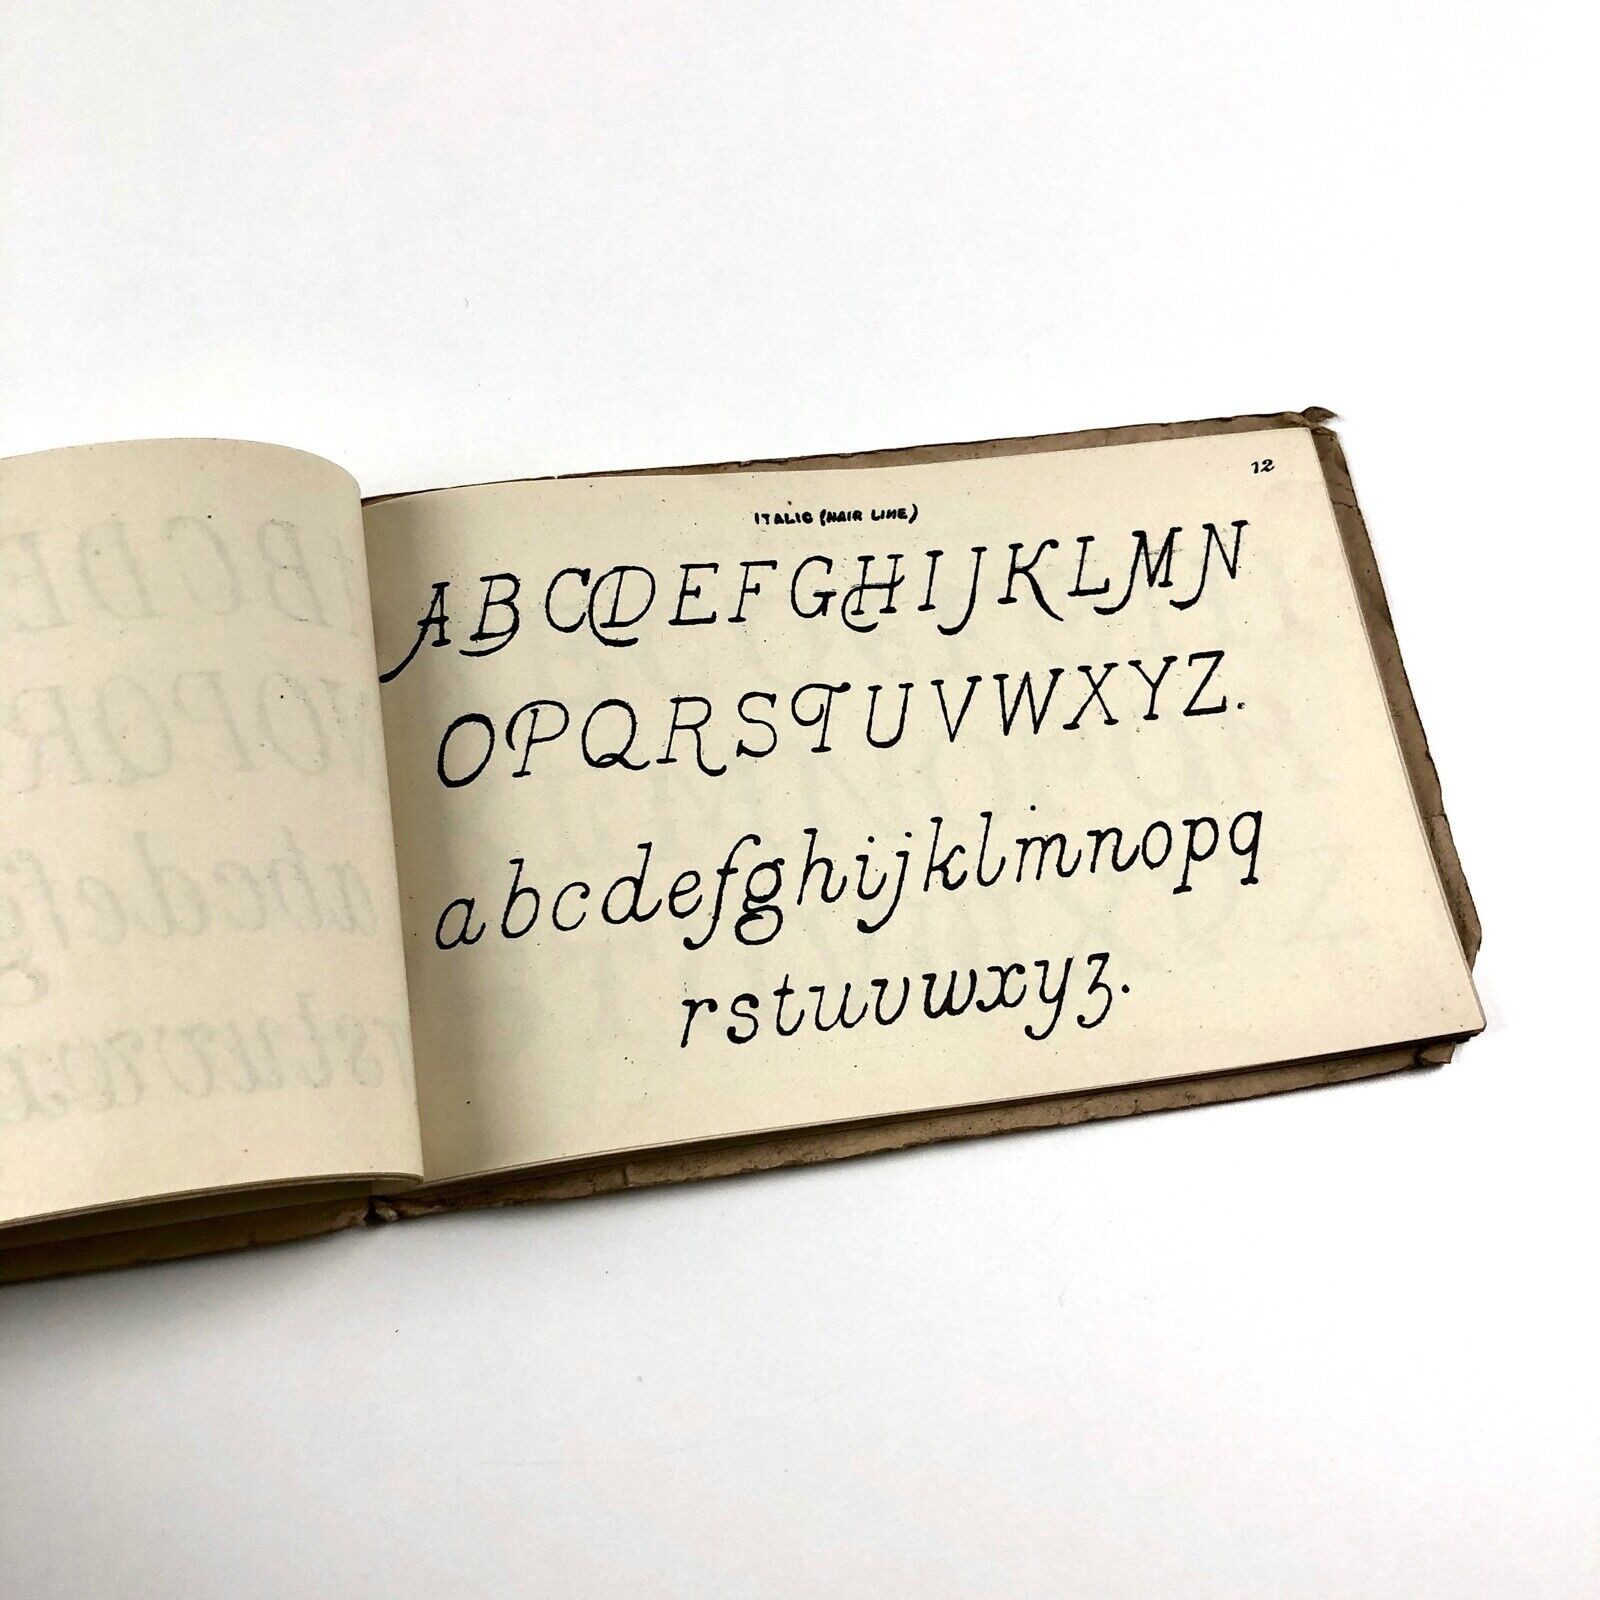 12
ITALIC (HAIR LINE)
ABCDEFGHIJKLMN
OPQRSTUVWXYZ.
abcdefghijklmnopq
rstuvwxyz.